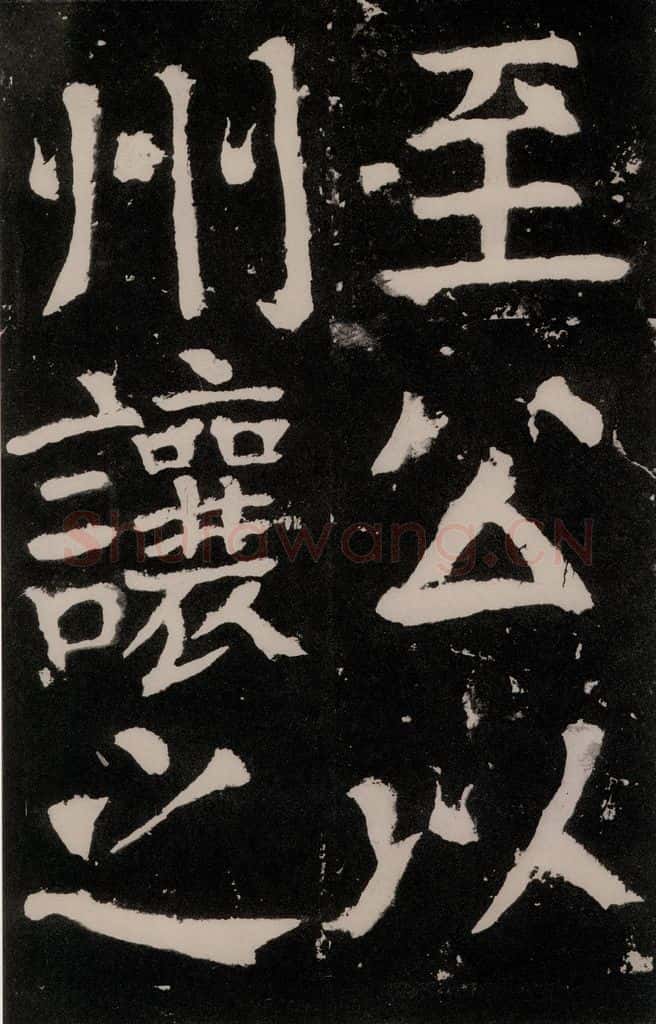 至公以
州讓之
Shufawang.CN